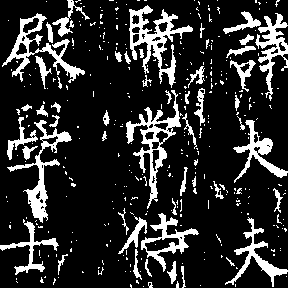 議大夫
騎常侍
殿學士